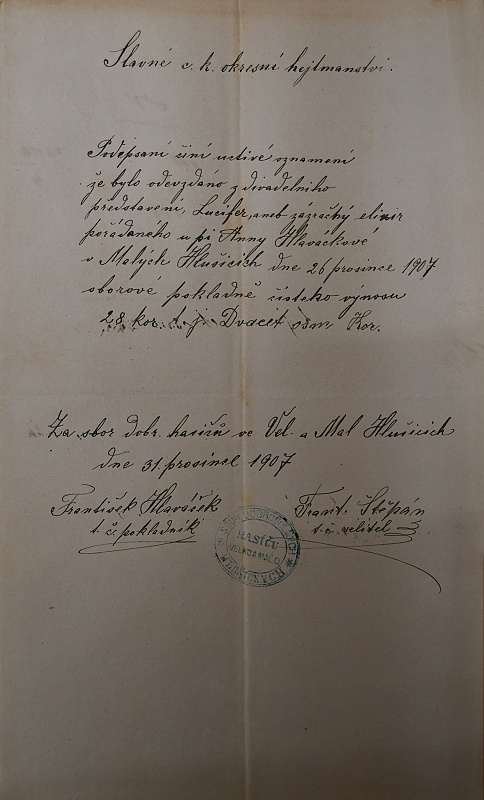 Slavné c. k. okresní hejtmanství.
Podepsaní činí uctivé oznámení
že bylo odevzdáno z divadelního
představení, Lucifer, aneb zázračký elixir
pořádaného u pí Anny Hlaváčkové
v Malých Hlušicích dne 26 prosince 1907
sborové pokladně čistého výnosu
28 kor. t. j. Dvacet osm Kor.
Za sbor dobr. hasičů ve Vel. a Mal Hlušicích
dne 31. prosinel 1907
František Hlaváček
t. č. pokladník
Frant. Štěpán
t. č. velitel
HASIČŮ